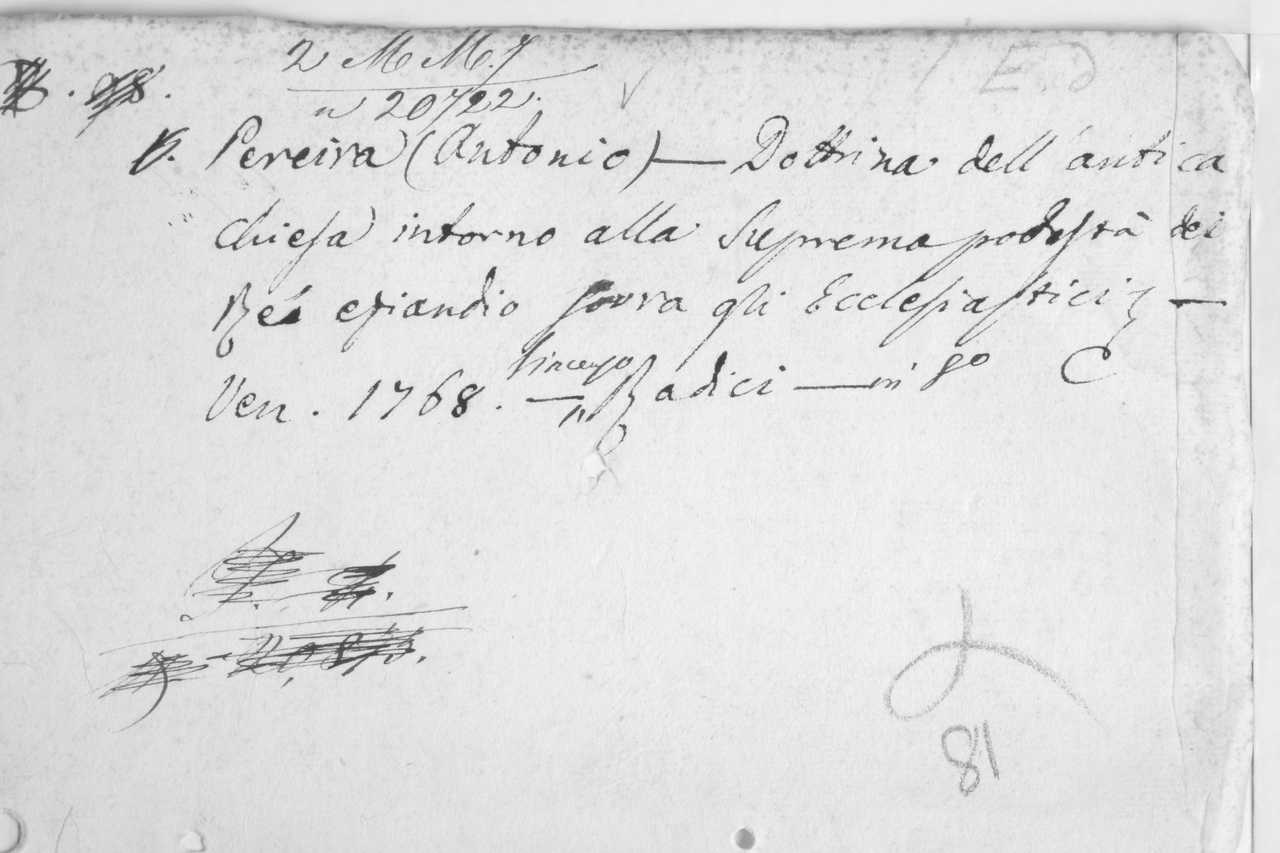 2 M M. 7
n 20722.
Pereira (Antonio) — Dottrina dell'antica
chiesa intorno alla Suprema podestà dei
Ré eziandio sovra gli Ecclesiastici —
Ven. 1768. — Vincenzo Radici — in 8º C
81